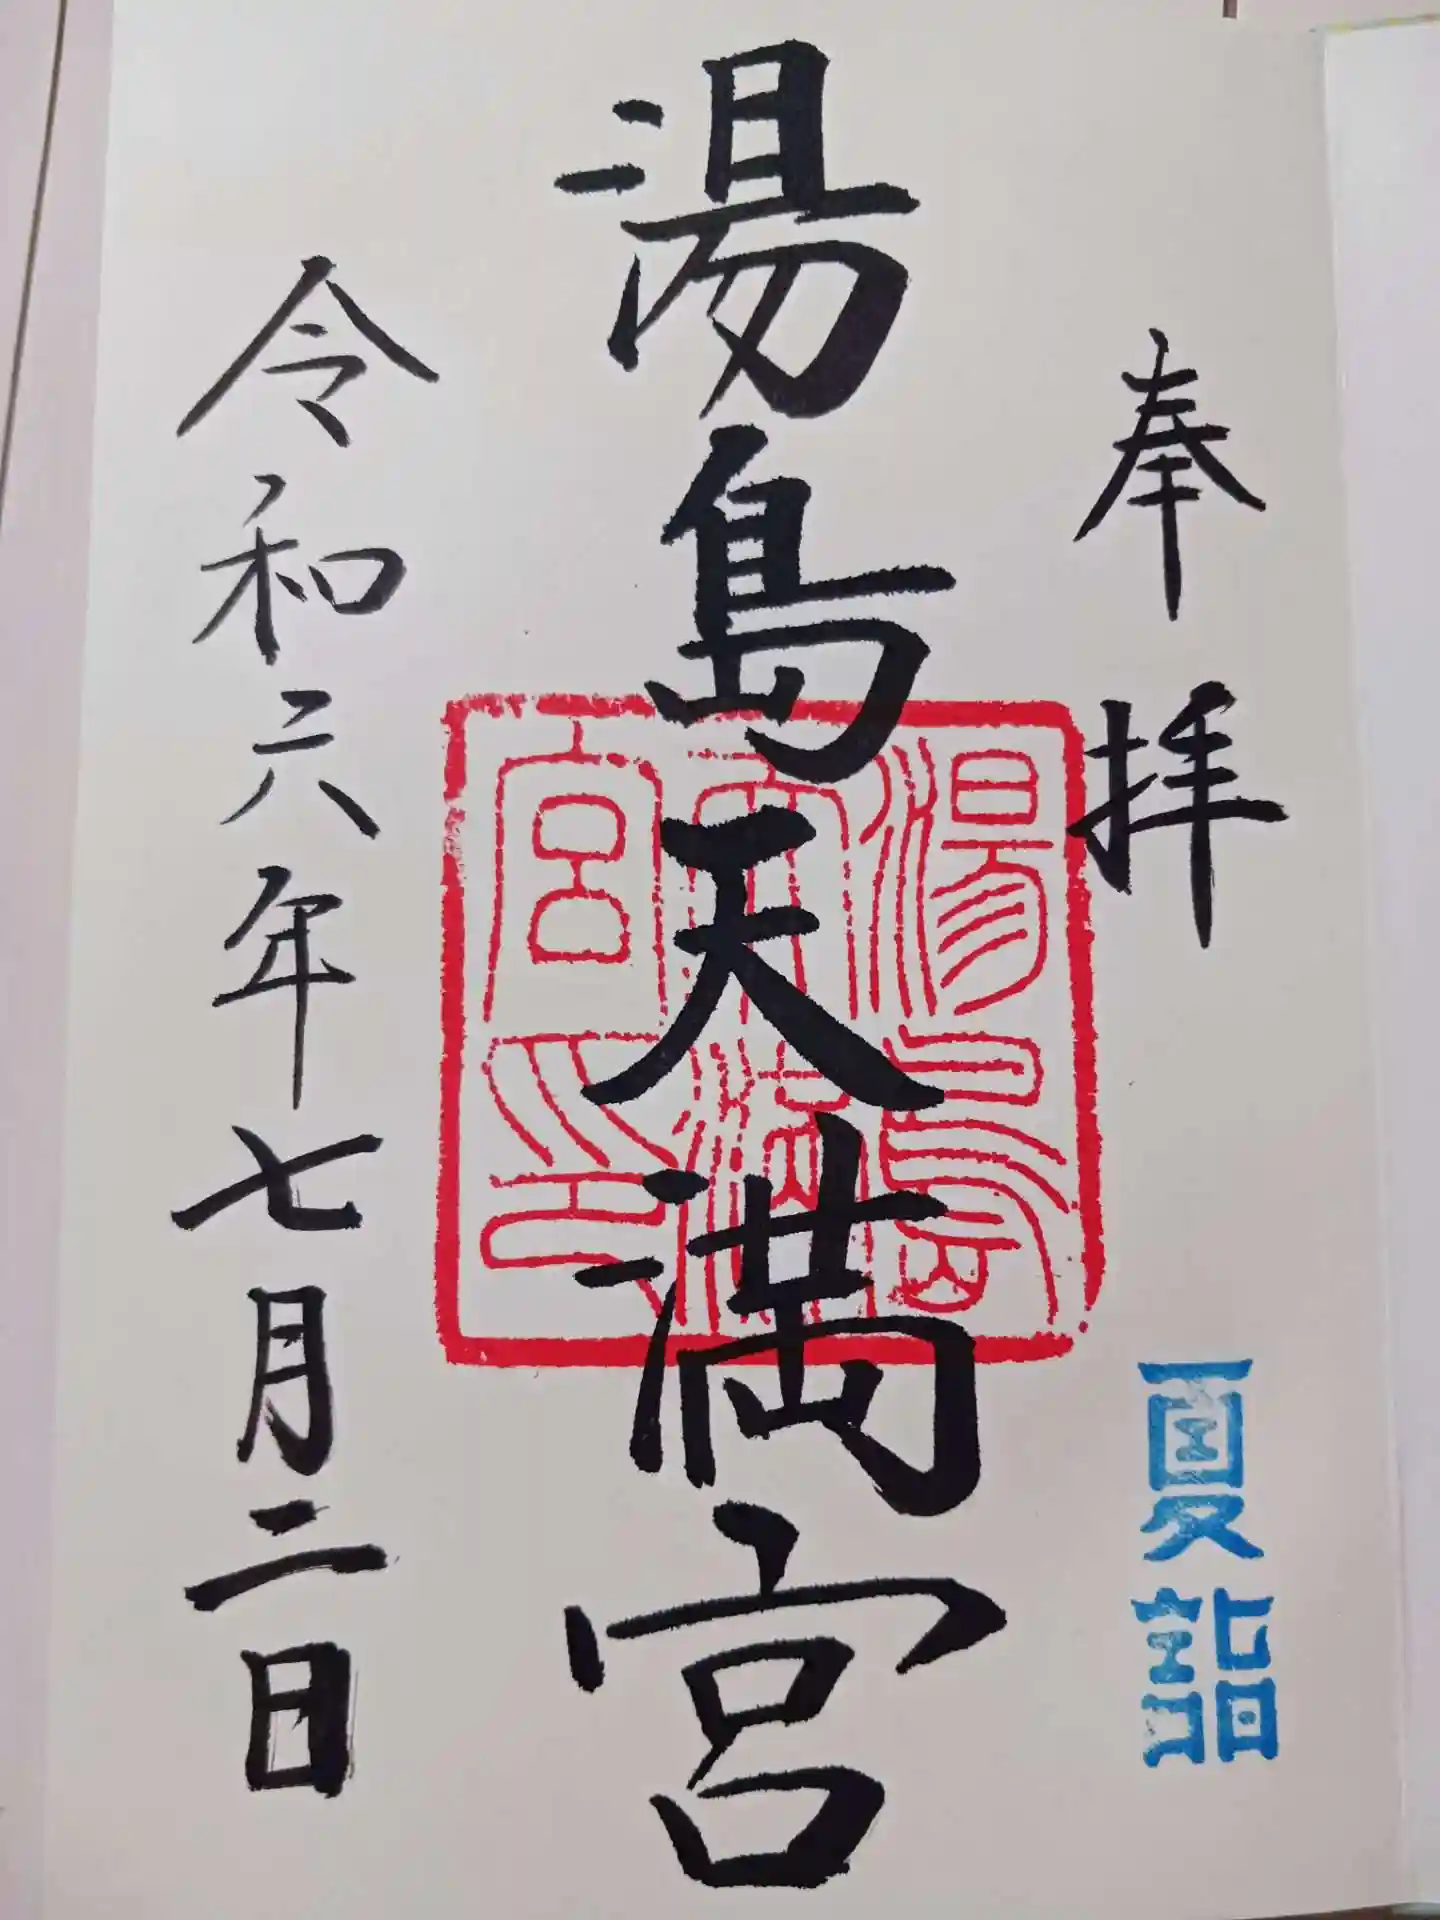 奉拝
夏詣
湯島天満宮
湯島天満宮印
令和六年七月二日